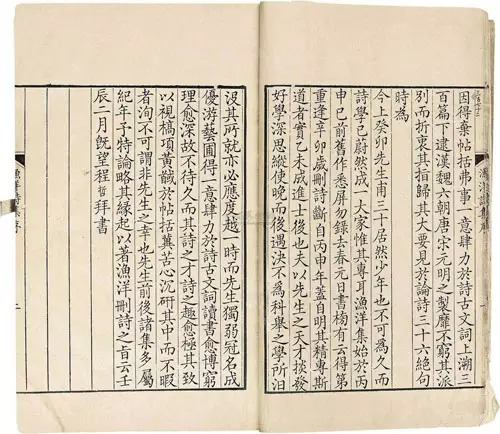 因得棄帖括弗事一意肆力於詩古文詞上溯三
百篇下逮漢魏六朝唐宋元明之製靡不窮其派
別而折衷其指歸其大要見於論詩三十六絕句
時為
今上癸卯先生甫三十居然少年也不可為久而
詩學已蔚然成一大家惟其專耳漁洋集始於丙
申已前舊作悉屏勿錄去春元日書樀有云得第
重逢辛卯歲刪詩斷自丙申年蓋自明其精專斯
道者實乙未成進士後也夫以先生之天才掞發
好學深思縱使晚而後遇決不為科舉之學所汩
沒其所就亦必應度越一時而先生獨弱冠名成
優游藝圃得一意肆力於詩古文詞讀書愈博窮
理愈深故不待久而其詩之才詩之趣愈極其致
以視槁項黃馘於帖括冀苦心沉研其中而不暇
者洵不可謂非先生之幸也先生前後諸集多屬
紀年予特論略其縁起以著漁洋刪詩之旨云壬
辰二月旣望程哲拜書